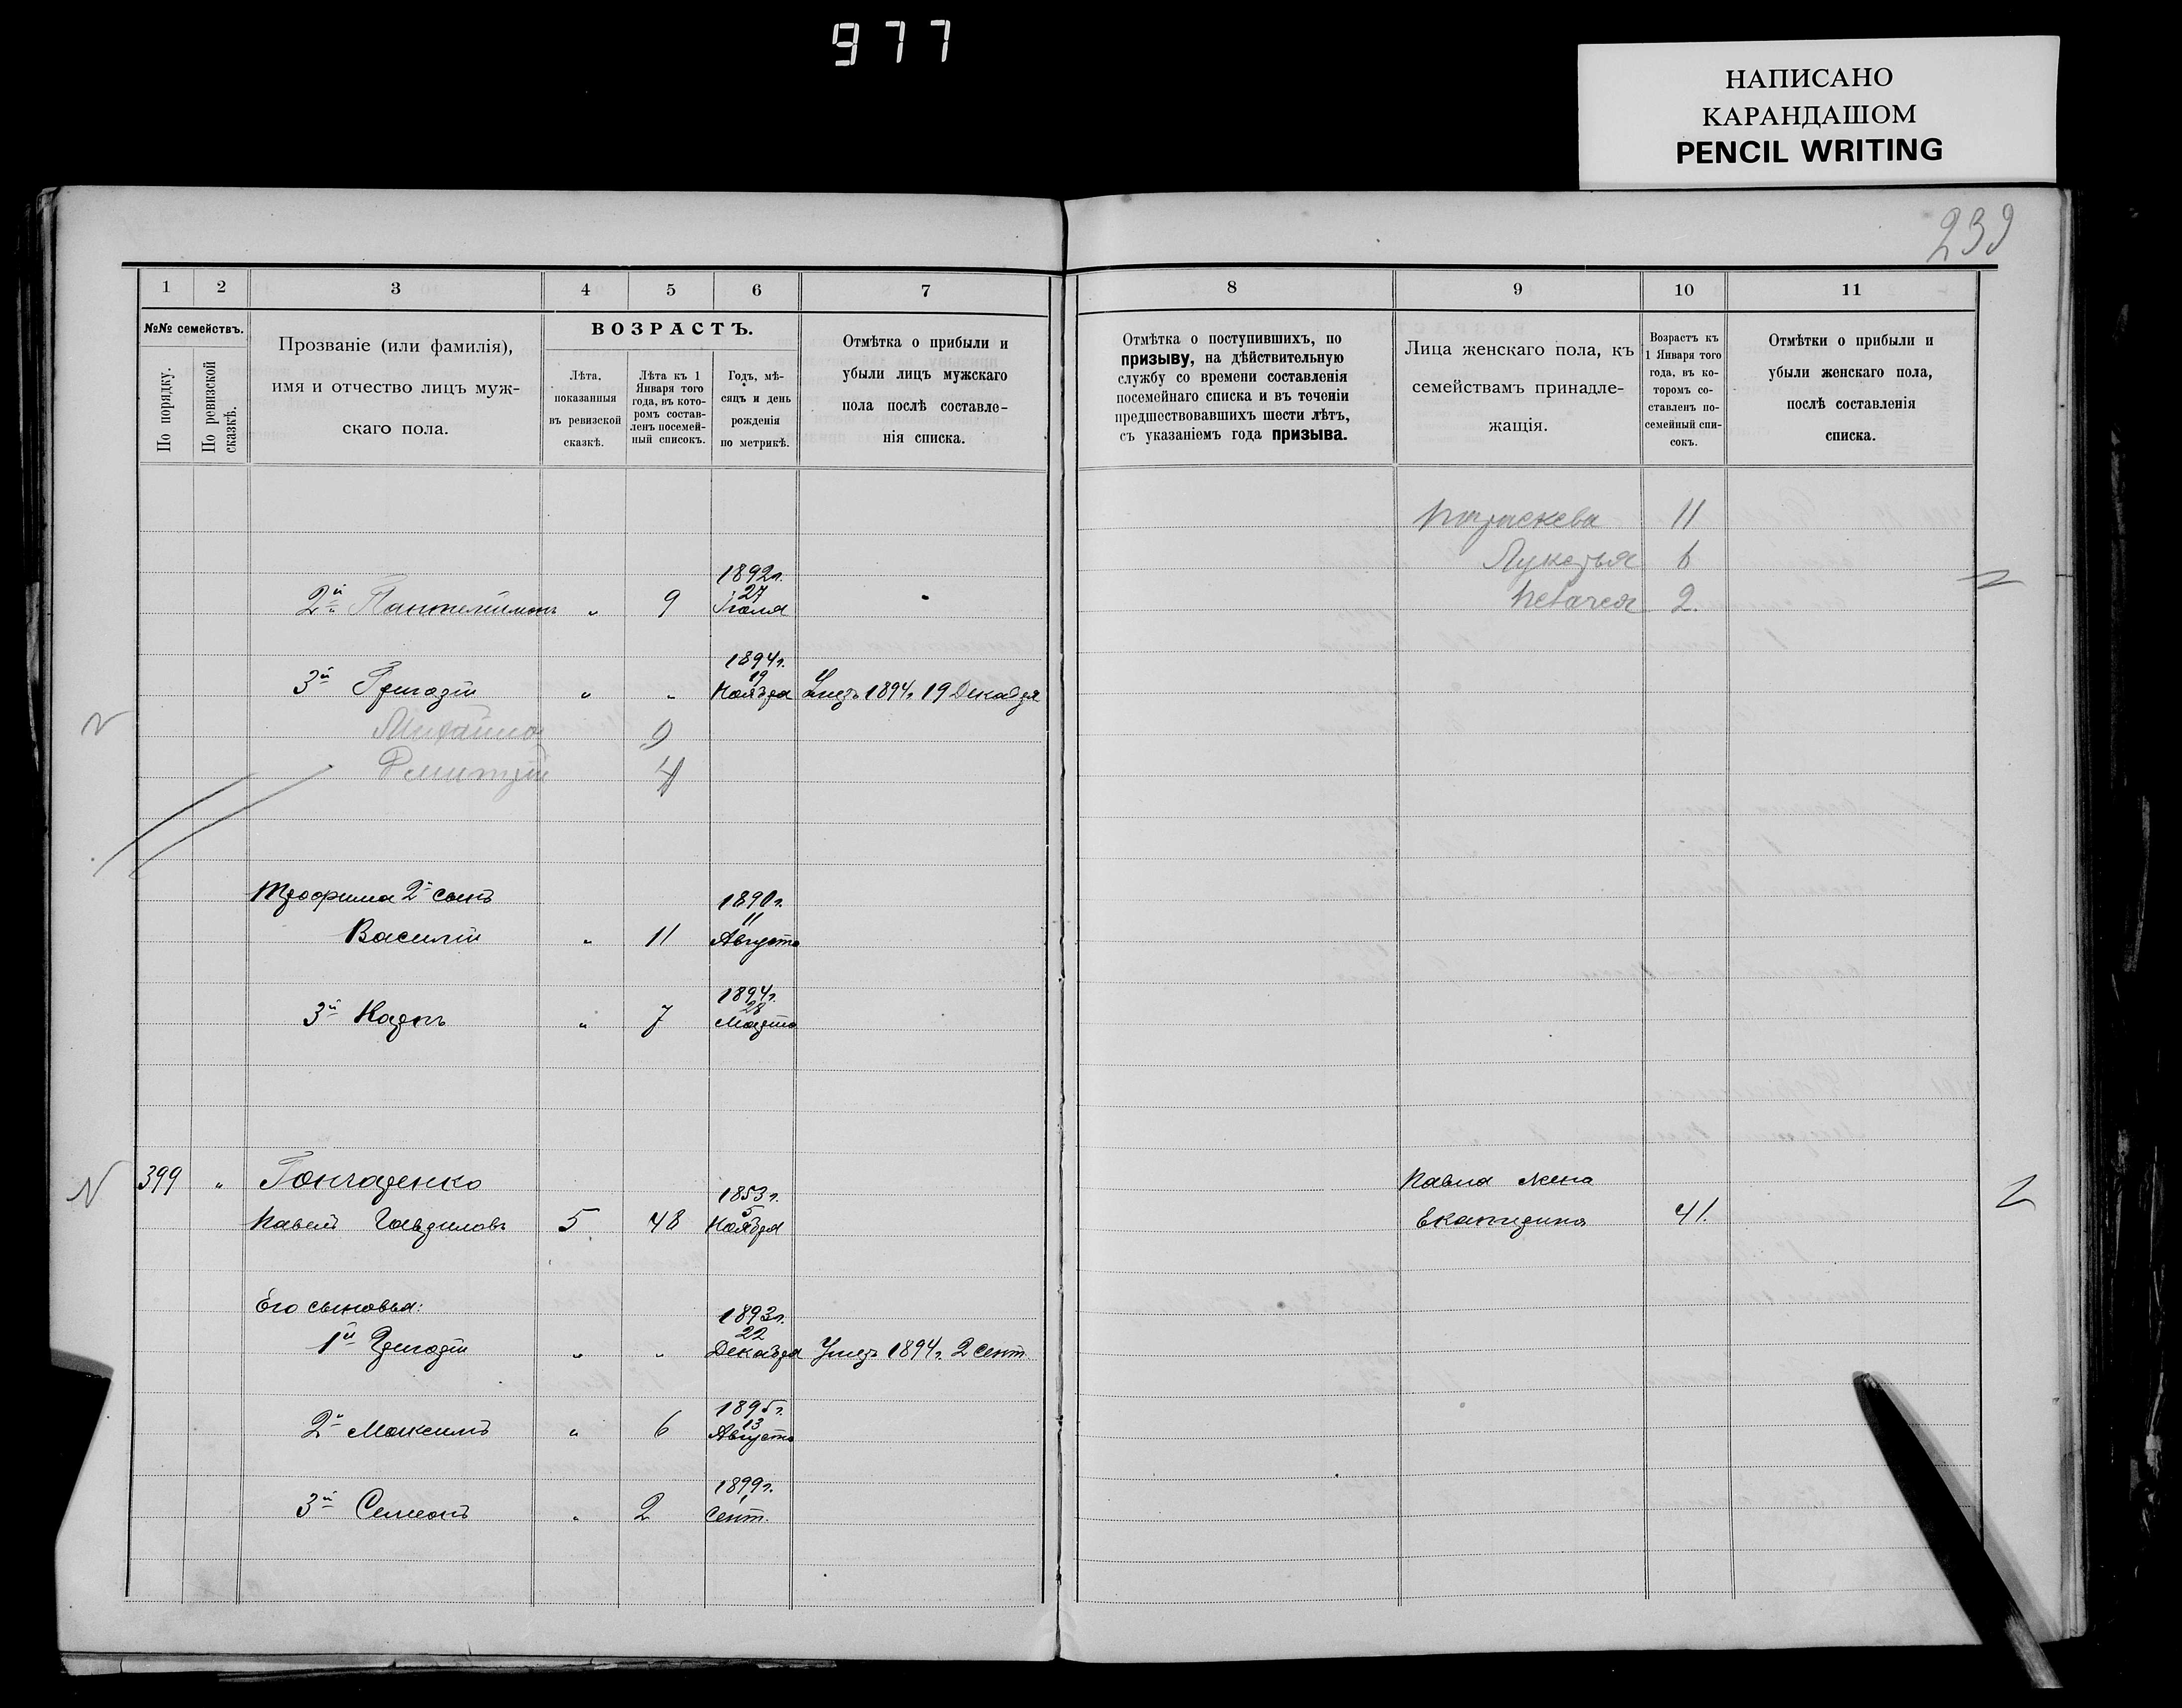 977
НАПИСАНО
КАРАНДАШОМ
PENCIL WRITING
239
1 2 3 4 5 6 7
№№ семействъ.
По порядку.
По ревизской сказкѣ.
Прозваніе (или фамилія),
имя и отчество лицъ муж-
скаго пола.
ВОЗРАСТЪ.
Лѣта,
показанныя
въ ревизской
сказкѣ.
Лѣта къ 1
Января того
года, въ кото-
ромъ состав-
ленъ посемей-
ный списокъ.
Годъ, мѣ-
сяцъ и день
рожденія
по метрикѣ.
Отмѣтка о прибыли и
убыли лицъ мужскаго
пола послѣ составле-
нія списка.
1892г.
27
2й Пантелимонъ " 9 Іюля
1894г.
19
3й Григорій " " Ноября Умеръ 1894г. 19 Декабря
Михаилъ 9
Дмитрій 4
Трофима 2й сынъ 1890г.
11
Василій " 11 Августа
1894г.
28
3й Карпъ " 7 Марта
399 " Гончаренко
1853г.
5
Павелъ Гавриловъ 5 48 Ноября
Его сыновья:
1893г.
22
1й Григорій " " Декабря Умеръ 1894г. 2 Сент.
1895г.
13
2й Максимъ " 6 Августа
1899г.
1
3й Семенъ " 2 Сент.
8 9 10 11
Отмѣтка о поступившихъ, по
призыву, на дѣйствительную
службу со времени составленія
посемейнаго списка и въ теченіи
предшествовавшихъ шести лѣтъ,
съ указаніемъ года призыва.
Лица женскаго пола, къ
семействамъ принадле-
жащія.
Возрастъ къ
1 Января того
года, въ ко-
торомъ со-
ставленъ по-
семейный спи-
сокъ.
Отмѣтки о прибыли и
убыли женскаго пола,
послѣ составленія
списка.
Параскева 11
Лукерья 6
2.
Павла жена
Екатерина 41.